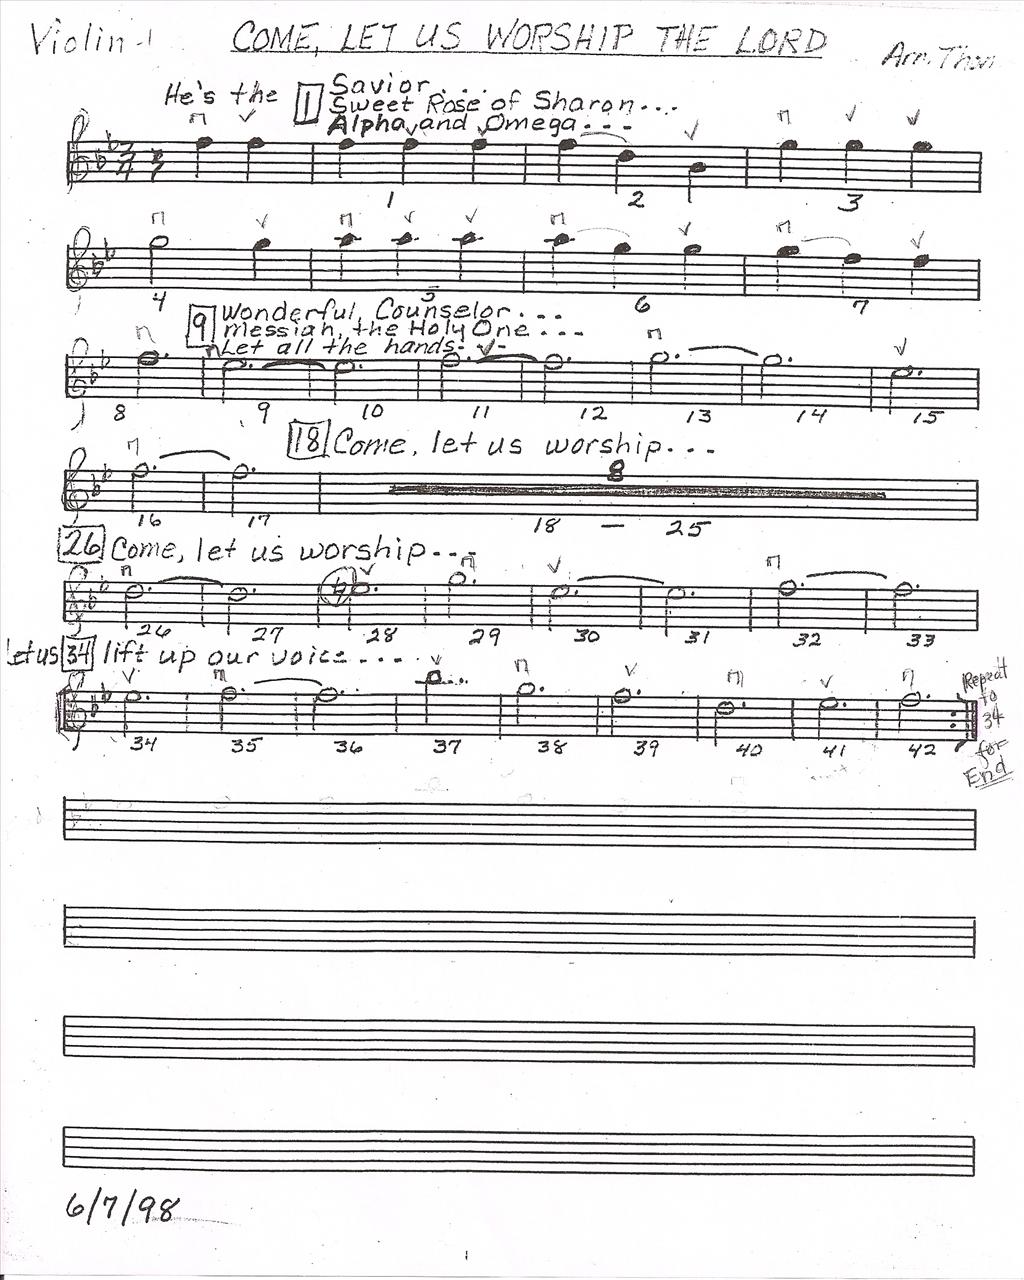 Violin-1 COME, LET US WORSHIP THE LORD Arr. Thom
He's the 1 Savior....
Sweet Rose of Sharon...
Alpha and Omega...
1 2 3
4 5 6 7
9 Wonderful, Counselor...
Messiah, the Holy One...
Let all the hands...
8 9 10 11 12 13 14 15
18 Come, let us worship...
8
16 17 18 — 25
26 Come, let us worship...
26 27 28 29 30 31 32 33
Let us 34 lift up our voice....
Repeat
to
34
for
End
34 35 36 37 38 39 40 41 42
6/7/98
1